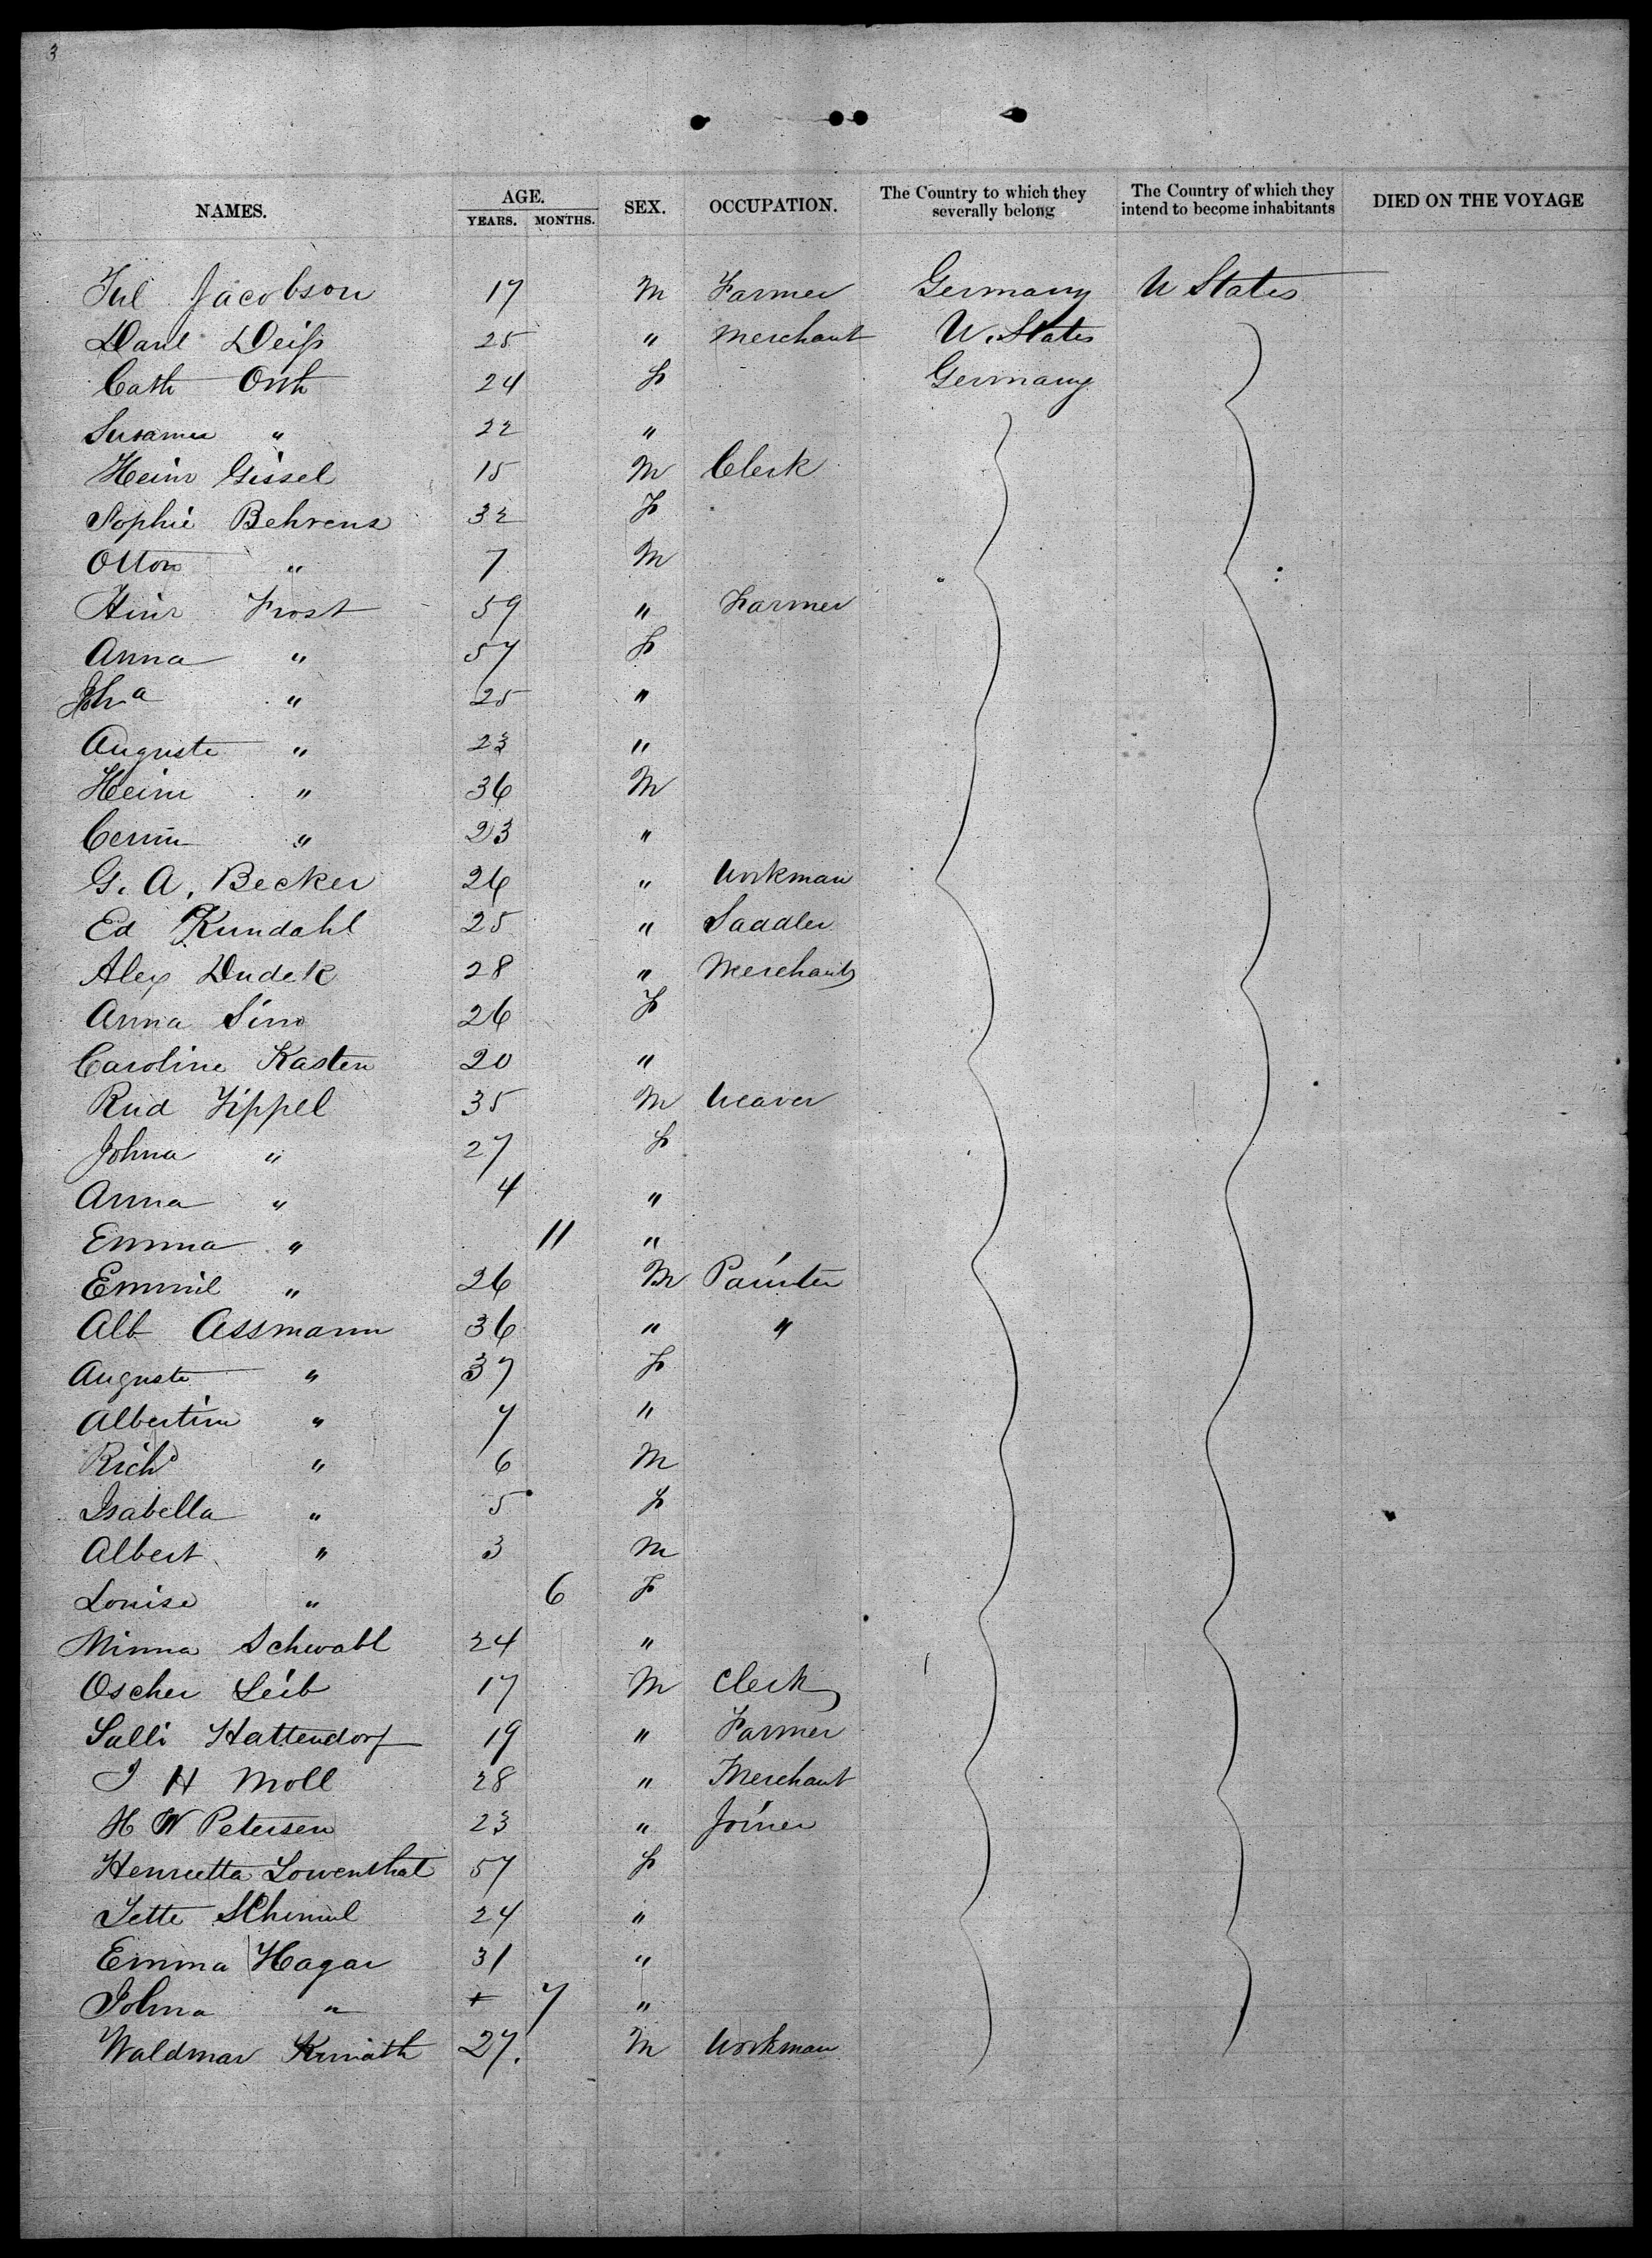 3
NAMES. AGE. YEARS. MONTHS. SEX. OCCUPATION. The Country to which they severally belong The Country of which they intend to become inhabitants DIED ON THE VOYAGE
Jul Jacobson 17 M Farmer Germany U States
Danl Deiß 25 " Merchant U. States
Cath Orth 24 F Germany
Susanna " 22 "
Heinr Gissel 15 M Clerk
Sophie Behrens 32 F
Otton " 7 M
Hinr Frost 59 " Farmer
Anna " 57 F
Joha " 25 "
Auguste " 23 "
Heinr " 36 M
" 23 "
G. A. Becker 26 " Workman
Ed Kundahl 25 " Saddler
Alex Dudek 28 " Merchant
Anna Sino 26 F
Caroline Kasten 20 "
Rud Zippel 35 M Weaver
Johna " 27 F
Anna " 4 "
Emma " 11 "
Emmil " 26 M Painter
Alb Assmann 36 " "
Auguste " 37 F
Albertine " 7 "
Richd " 6 M
Isabella " 5 F
Albert " 3 M
Louise " 6 F
Minna Schwabl 24 "
Oscher Leib 17 M Clerk
Salli Hattendorf 19 " Farmer
J H Moll 28 " Merchant
H W Petersen 23 " Joiner
Henrietta Lowenthal 57 F
Jette 24 "
Emma Hagar 31 "
Johna " + 7 "
Waldmar 27. M Workman